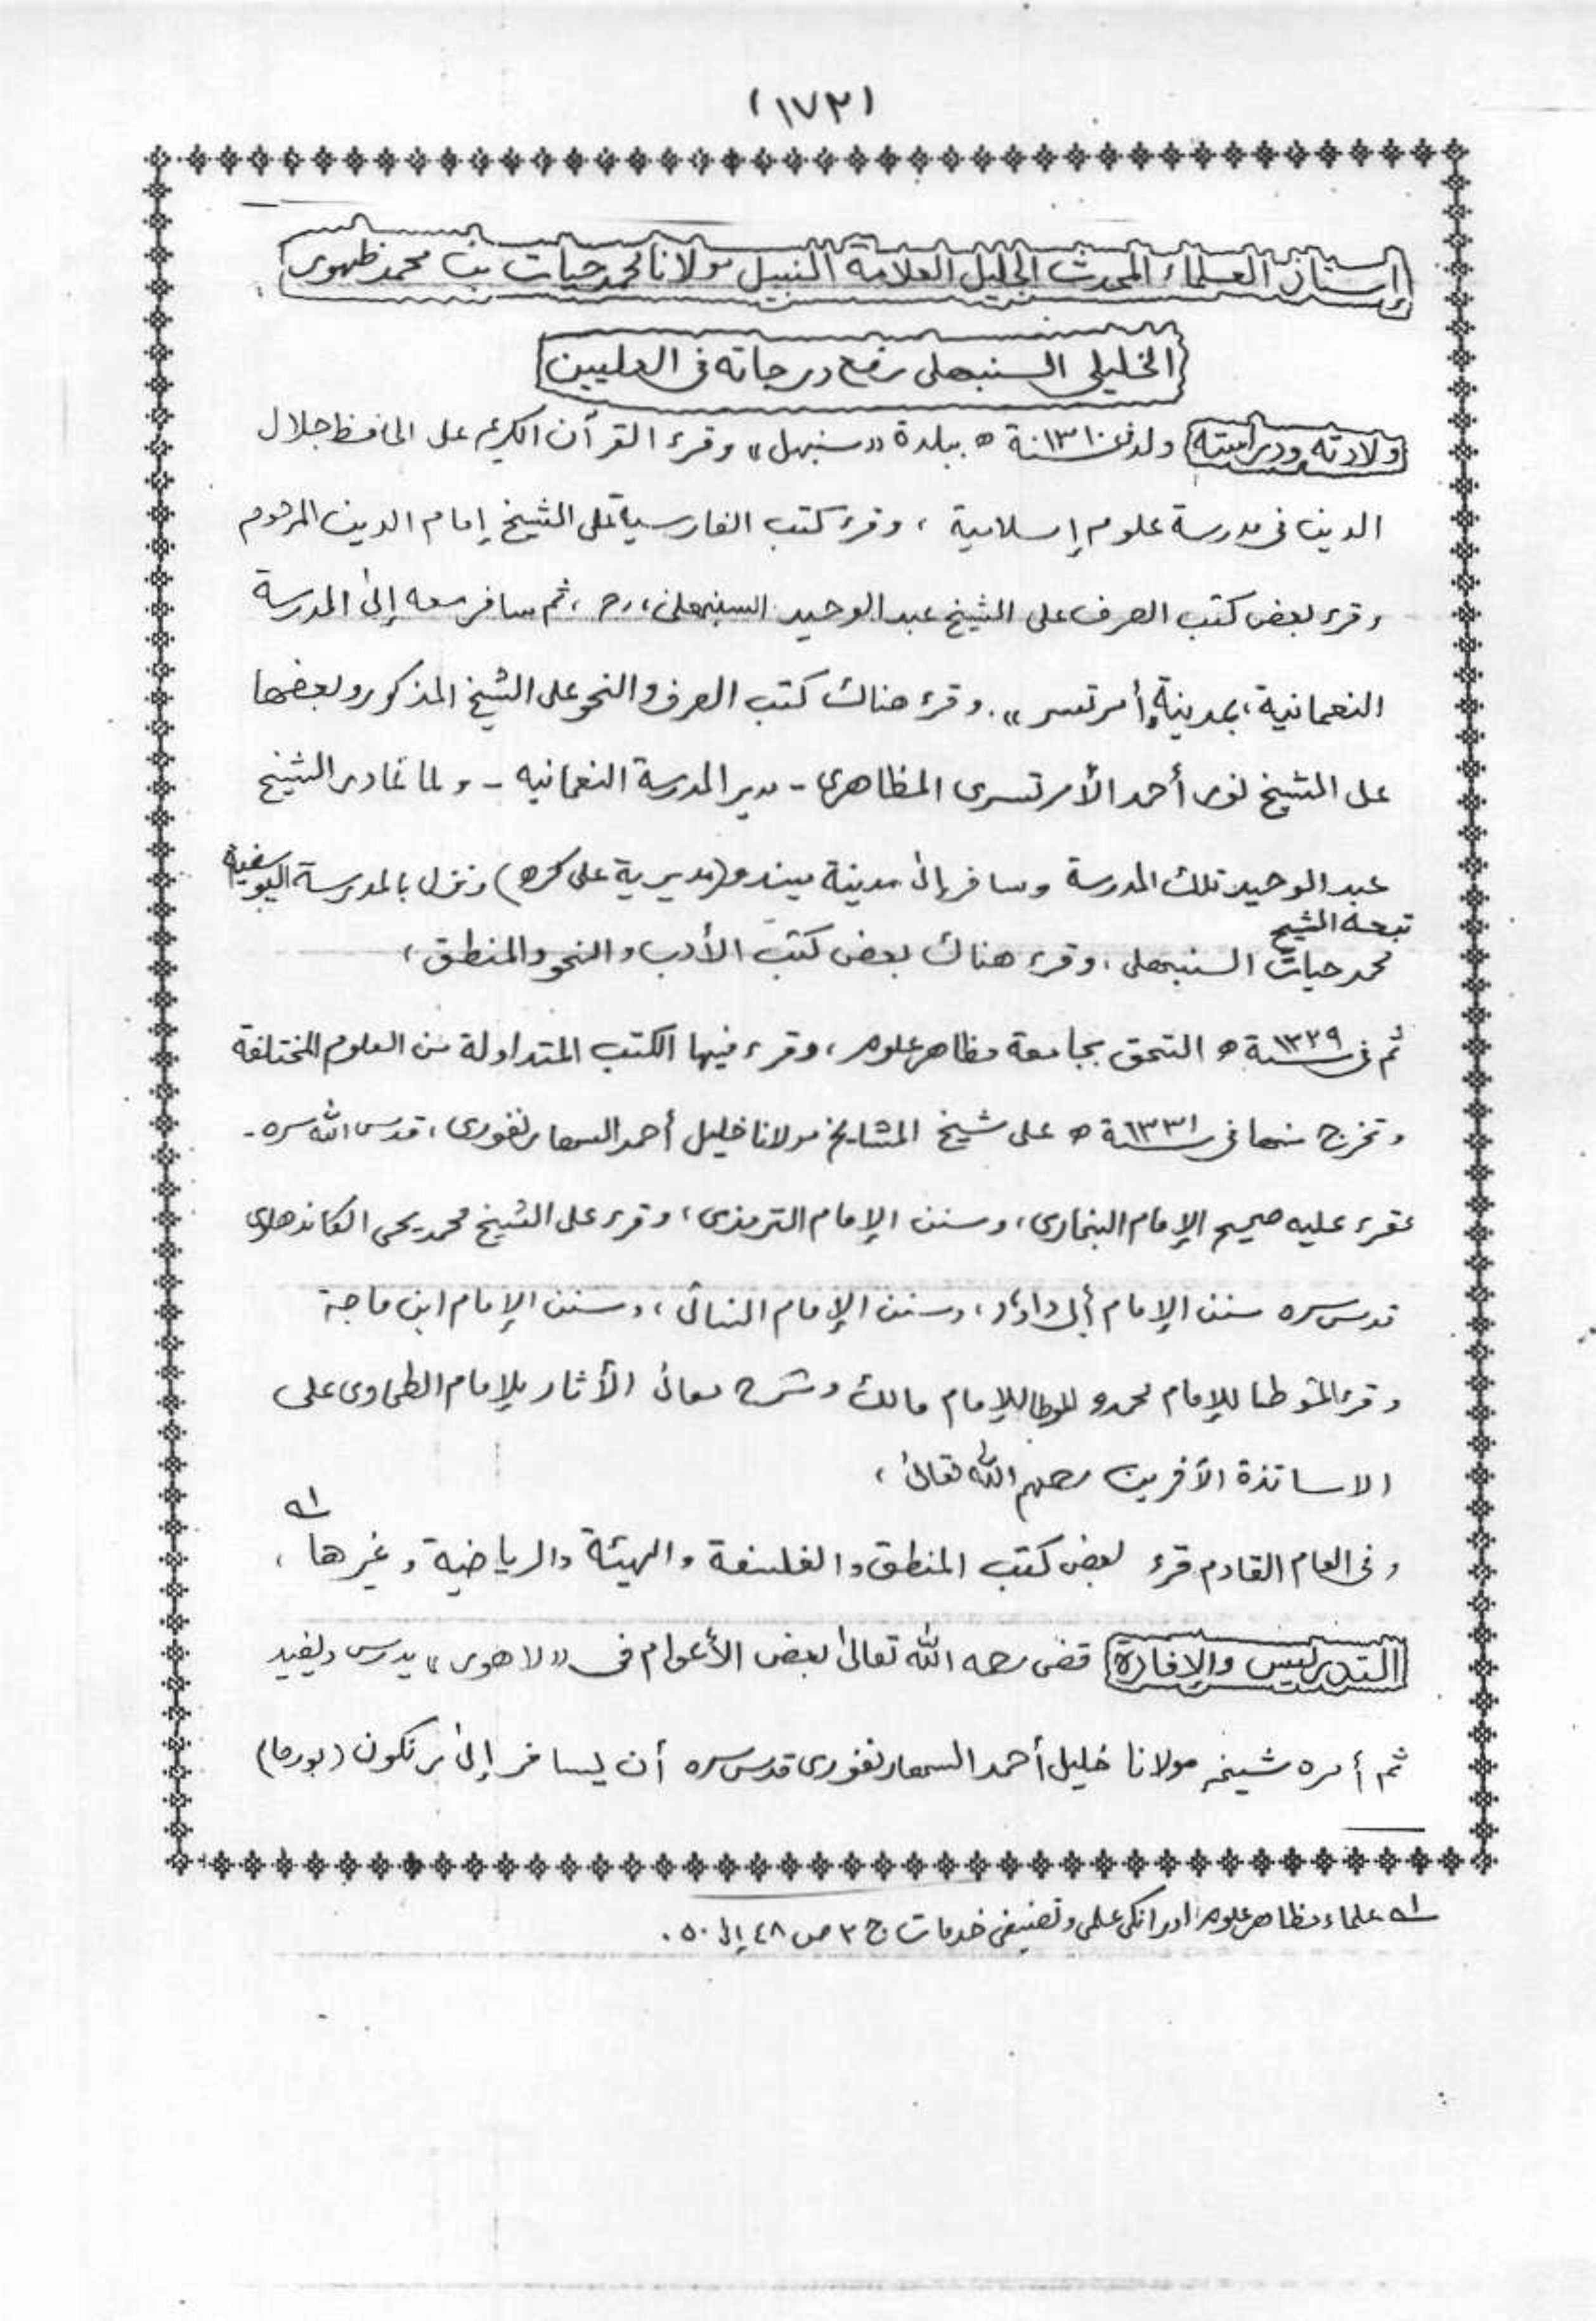 (١٧٣)
إستاذ العلماء المحدث الجليل العلامة النبيل مولانا محمد حيات بن محمد ظهور
الخليلي السنبهلى رفع درجاته فى العليين
ولادته ودراسته ولد فى سنة ١٣١٠ ھ ببلدة «سنبهل» وقرء القرآن الكريم على الحافظ جلال
الدين فى مدرسة علوم إسلامية ، وقرء كتب الفارسية على الشيخ إمام الدين المرحوم
وقرء بعض كتب الصرف على الشيخ عبد الوحيد السنبهلى،رح ، ثم سافر معه إلى المدرسة
النعمانية، بمدينة «أمرتسر». وقرء هناك كتب الصرف والنحو على الشيخ المذكور وبعضها
على الشيخ نور أحمد الأمرتسرى المظاهرى - مدير المدرسة النعمانيه - ولما غادر الشيخ
عبد الوحيد تلك المدرسة وسافر إلى مدينة ميندو (مديرية على كره) ونزل بالمدرسة اليوسفية
تبعه الشيخ
محمد حيات السنبهلى ، وقرء هناك بعض كتب الأدب والنحو والمنطق ،
ثم فى سنة ١٣٢٩ ھ التحق بجامعة مظاهر علوم ، وقرء فيها الكتب المتداولة من العلوم المختلفة
وتخرج منها فى سنة ١٣٣١ ھ على شيخ المشايخ مولانا خليل أحمد السهارنفورى ، قدس الله سره -
فقرء عليه صحيح الإمام البخارى ، وسنن الإمام الترمذى ، وقرء على الشيخ محمد يحى الكاندهلوى
قدس سره سنن الإمام أبى داؤد ، وسنن الإمام النسائى ، وسنن الإمام ابن ماجة
وقرء المؤطا للإمام محمد و الموطا للإمام مالك وشرح معانى الأثار للإمام الطحاوى على
الاساتذة الآخرين رحمهم الله تعالى ،
وفى العام القادم قرء بعض كتب المنطق والفلسفة والهيئة والرياضية وغيرها ، ١ھ
التدريس والإفادة قضى رحمه الله تعالى بعض الأعوام فى «لاهور» يدرس ويفيد
ثم أمره شيخه مولانا خليل أحمد السهارنفورى قدس سره أن يسافر إلى رنكون (بورما)
١ھ علماء مظاهر علوم اور انكى علمى وتصنيفى خدمات ج ٢ ص ٤٨ إلى ٥٠ .